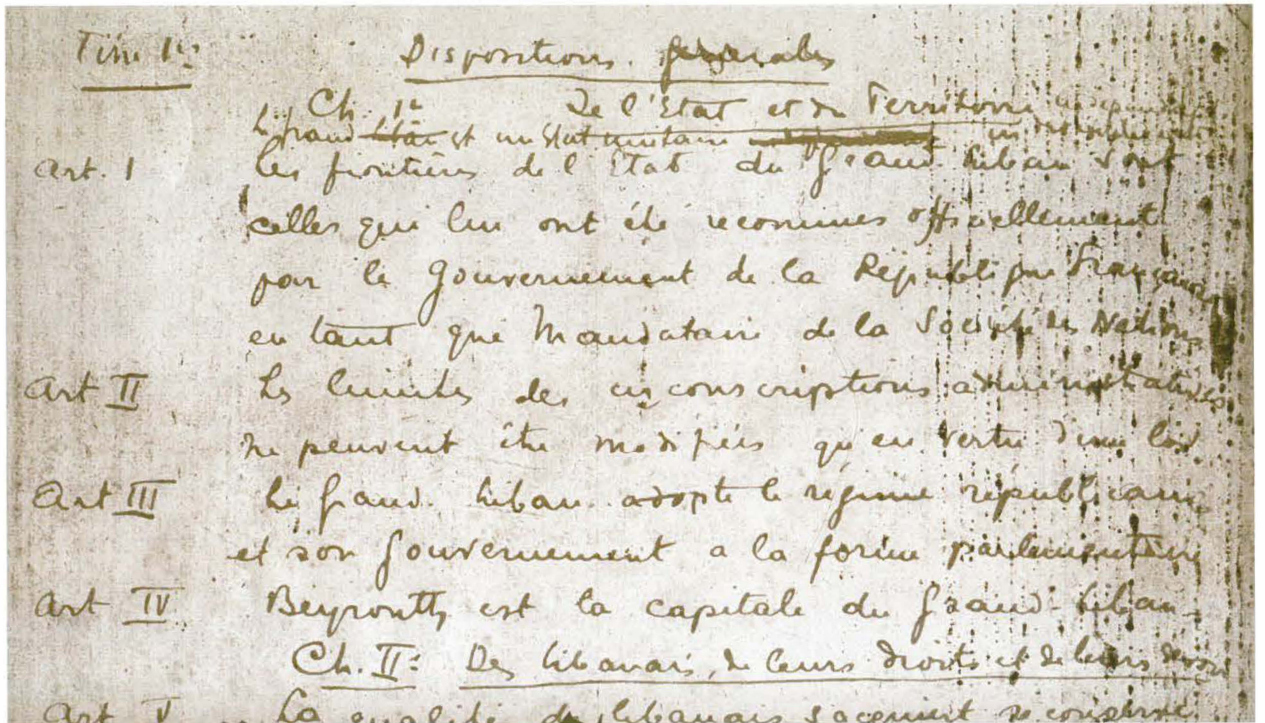 Titre 1er Dispositions générales
Ch. 1er De l'Etat et du Territoire
Le Grand est un Etat unitaire indépendant
Art. I Les frontières de l'Etat du Grand Liban sont
celles qui lui ont été reconnues officiellement
par le Gouvernement de la République Française
en tant que Mandataire de la Société des Nations
Art II Les limites des circonscriptions administratives
ne peuvent être modifiées qu'en vertu d'une loi.
Art III Le Grand Liban adopte le régime républicain
et son Gouvernement a la forme parlementaire
Art IV Beyrouth est la capitale du Grand Liban
Ch. II: Des libanais, de leurs droits et de leurs devoirs
Art V La qualité de libanais s'acquiert se conserve